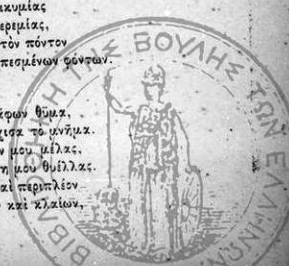 κυμίας
ερεμίας,
τὸν πόντον
πεσμένων φόντων.
άφων θῦμα,
ισα τὸ μνῆμα.
ν μου μέλας,
η μου θυέλλας.
αὶ περιπλέον
ν καὶ κλαίων,
ΒΙΒΛΙΟΘΗΚΗ ΤΗΣ ΒΟΥΛΗΣ ΤΩΝ ΕΛΛΗΝΩΝ